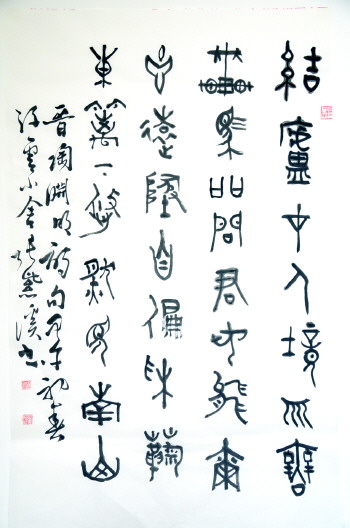 結廬在人境而無
車馬喧問君何能爾
心遠地自偏采菊
東籬下悠然見南山
晉陶淵明詩句
雲小舍紫溪書